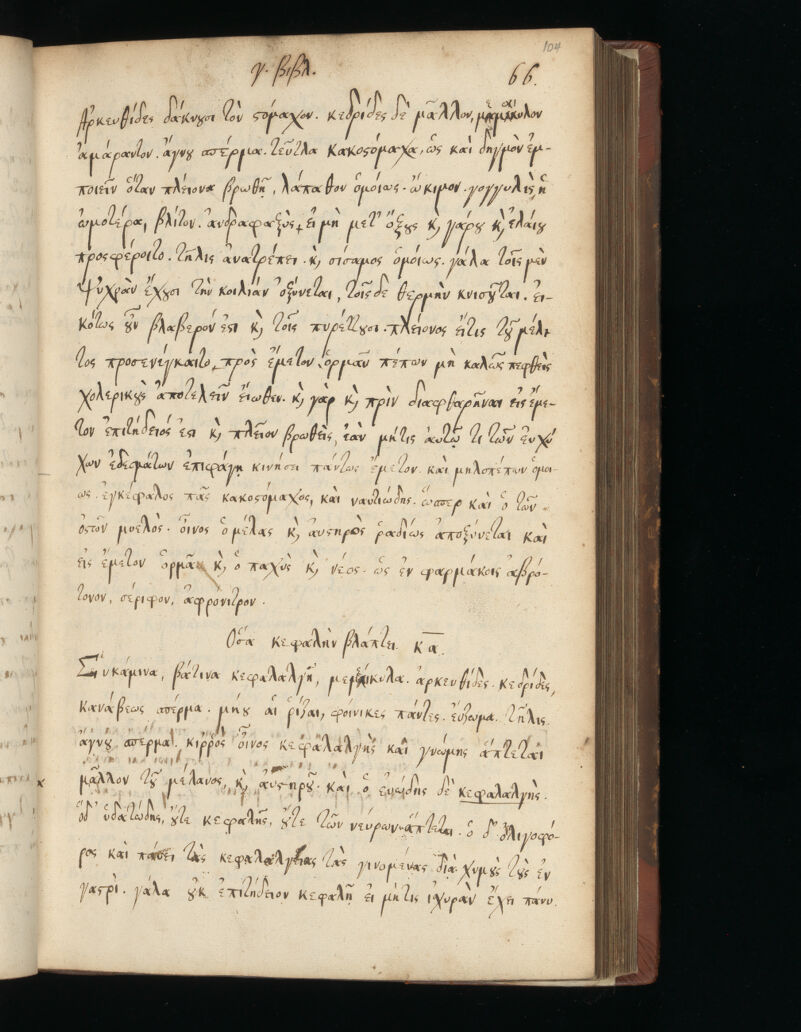 104
γ. βιβλ.
66.
Ἀρκευθίδες δάκνουσι τὸν στόμαχον. κεδρίδες δὲ μᾶλλον,
ἀμάραντον. ἄγνου σπέρμα. τεῦτλα κακοστόμαχα, ὡς καὶ δηγμὸν ἐμ-
ποιεῖν ὅταν πλείονα βρωθῇ, λάπαθον ὁμοίως. ὤκιμον. γογγυλὶς ἡ
ὠμοτέρα, βλίτον. ἀνδραφαξὺς, εἰ μὴ μετ' ὄξους κὶ γάρου κὶ ἐλαίου
προσφέροιτο. τῆλις ἀνατρέπει. κὶ σίσαμος ὁμοίως. γάλα τοῖς μὲν
ψυχρὰν ἔχουσι τὴν κοιλίαν ὀξύνεται, τοῖς δε θερμὴν κνισοῦται. εἰ-
κότως οὖν βλαβερόν ἐστι κὶ τοῖς πυρέττουσι. πλείονος εἴτις τοῦ μέλι
τος προσενέγκαιτο, πρὸς ἔμετον ὁρμᾶν πέπων μὴ καλῶς πεφθεὶς
χολερικοὺς ἀποτελεῖν εἴωθεν. κὶ γὰρ κὶ πρὶν διαφθαρῆναι εἰς ἔμε-
τον ἐπιτήδειός ἐστι κὶ πλεῖον βρωθεὶς, ἐὰν μήτις αὐτῷ τι τῶν εὐχύ
χων ἐδεσμάτων ἐπιφάγῃ κινήσει πάντως ἔμετον. καὶ μηλοπέπων ὁμοί-
ως. ἐγκέφαλος πᾶς κακοστόμαχος, καὶ ναυτιώδης. ὥσπερ καὶ ὁ τῶν
ὀστῶν μυελὸς. οἶνος ὁ μέλας κὶ αὐστηρὸς ῥαδίως ἀποξύνεται καὶ
εἰς ἔμετον ὁρμᾶ κὶ ὁ παχὺς κὶ νέος. ὡς ἐν φαρμάκοις ἀβρό-
τονον, σέριφον, ἀφρόνιτρον.
Ὅσα κεφαλὴν βλάπτει. κα.
Συκάμινα, βάτινα κεφαλαλγῆ, ἀρκευθίδες. κεδρίδες,
κανάβεως σπέρμα. μήου αἱ ῥίζαι, φοίνικες πάντες. εὔζωμα. τῆλις.
ἄγνου σπέρμα. κιρρὸς οἶνος κεφαλαλγὴς καὶ γνώμης ἅπτεται
μᾶλλον τοῦ μέλανος, κὶ αὐστηροῦ. καὶ ὁ εὐώδης δὲ κεφαλαλγὴς.
ὁδ' ὑδατώδης, οὔτε κεφαλῆς, οὔτε τῶν νεύρων ἅπτεται. ὁ δ' ὀλιγοφό-
ρος καὶ παύει τὰς κεφαλαλγίας τὰς γινομένας διὰ χυμοὺς τοὺς ἐν
γαστρὶ. γάλα οὐκ ἐπιτήδειον κεφαλῇ εἰ μήτις ἰχυρὰν ἔχει πάνυ.